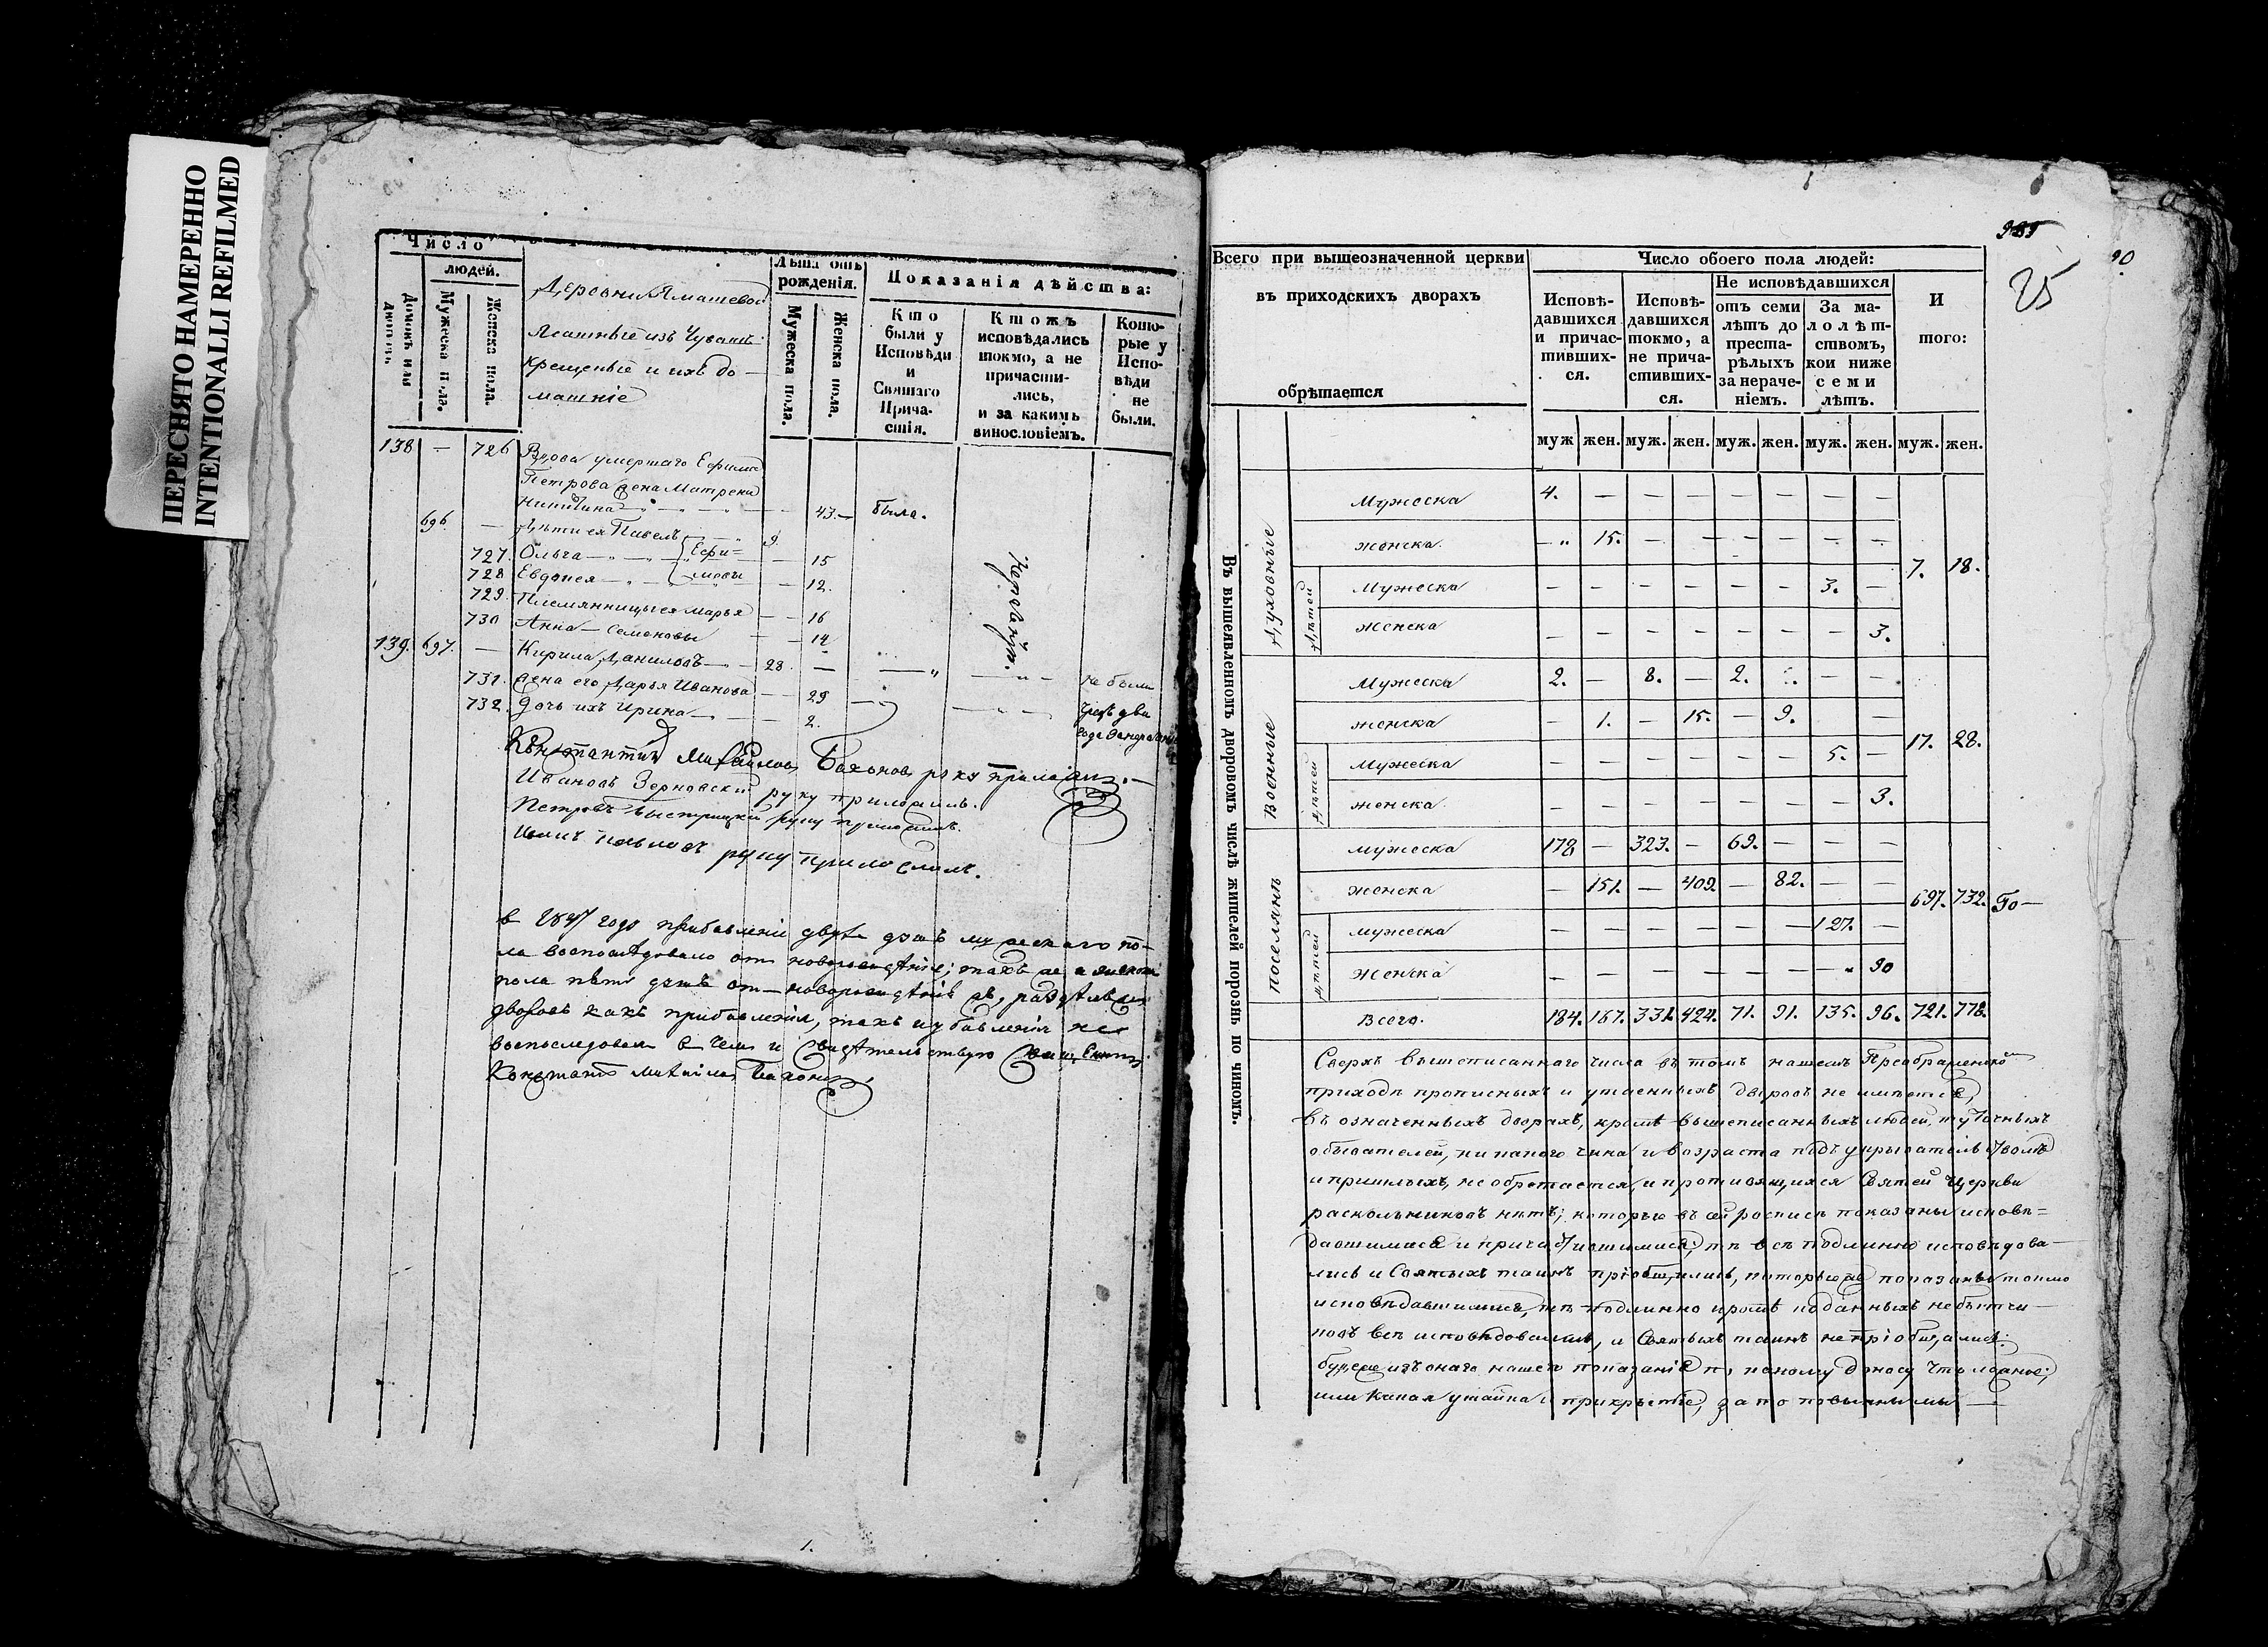 ПЕРЕСНЯТО НАМЕРЕННО
INTENTIONALLI REFILMED
Число
людей.
Домовъ или дворовъ.
Мужеска пола.
Женска пола.
Деревни Ямашевой
Ясашные изъ Чувашъ
Крещеные и ихъ до-
машніе
Лѣта отъ рожденія.
Мужеска пола.
Женска пола.
Показанія дѣйства:
Кто были у Исповѣди и Святаго Прича-стія.
Ктожъ исповѣдались токмо, а не причасти-лись, и за какимъ винословіемъ.
Кото-рые у Испо-вѣди не были.
138 — 726 Вдова умершаго Ефима
Петрова жена Матрена
43. — была.
696. — Дѣти ея Павелъ 9.
727. Ольга — 15
Ефи=
мовы
728 Евдокея — 12.
729. Племянницы ея Марья — 16
730 Анна — Семеновы — 14
139. 697. — Кирила Даниловъ — 28. —
не были
731. жена его Дарья Иванова — 29
732. дочь ихъ Ирина — 2.
Константинъ Михайловъ руку приложилъ. —
Ивановъ Зерновскій руку приложилъ.
Петровъ руку приложилъ.
руку приложилъ.
в 1847 году прибавленіе двухъ душъ мужескаго по-
ла воспослѣдовало отъ новорожденныхъ; такъ же и женскаго
пола пять душъ отъ
дворовъ какъ прибавленія, такъ и убавленія не
воспоследовало в чемъ и свидѣтельствую
Константинъ Михайловъ
985
25
90
Всего при вышеозначенной церкви
въ приходскихъ дворахъ
обрѣтается
Число обоего пола людей:
Исповѣ-давшихся и причас-тивших-ся.
Исповѣ-давшихся токмо, а не прича-стивших-ся.
Не исповѣдавшихся
отъ семи лѣтъ до преста-рѣлыхъ за нераче-ніемъ.
За ма-лолѣт-ствомъ, кои ниже семи лѣтъ.
И того:
муж жен. муж. жен. муж. жен. муж. жен. муж. жен.
Въ вышеявленномъ дворовомъ числѣ жителей порознь по чиномъ.
Духовные
Мужеска 4. — — — — — — —
женска. — 15. — — — — — —
7. 18.
Дѣтей
Мужеска — — — — — — 3. —
женска — — — — — — — 3.
Военные
Мужеска 2. — 8. — 2. — —
женска — 1. — 15. — 9. —
17. 28.
Дѣтей
Мужеска — — — — — — 5. —
женска. — — — — — — — 3.
поселянъ
мужеска 178 — 323. — 69. — — —
женска — 151. — 409 — 82. — —
697. 732. По —
Дѣтей
мужеска — — — — — — 127. —
женска — — — — — — 90
Всего. 184. 167. 331. 424. 71. 91. 135. 96. 721. 778.
Сверхъ вышеписаннаго числа въ томъ нашемъ Преображенскомъ
приходѣ прописныхъ и утаенныхъ дворовъ не имѣется,
въ означенныхъ дворахъ, кромѣ вышеписанныхъ людей, тутошныхъ
обывателей, никакого чина и возраста подъ укрывательствомъ
и пришлыхъ, не обрѣтается, и противящихся Святей Церкви
раскольниковъ нѣтъ; которые въ сей росписи показаны исповѣ=
давшимися и причастившимися, тѣ всѣ подлинно исповѣдова-
лись и Святыхъ таинъ пріобщились, которые же показаны токмо
исповѣдавшимися, тѣ подлинно кромѣ поданныхъ не быти-
ковъ всѣ исповѣдовались, и Святыхъ таинъ не пріобщались:
буде же изъ онаго нашего показанія по какому доносу что ложное;
или какая утайка и прикрытіе, за то повинны мы —